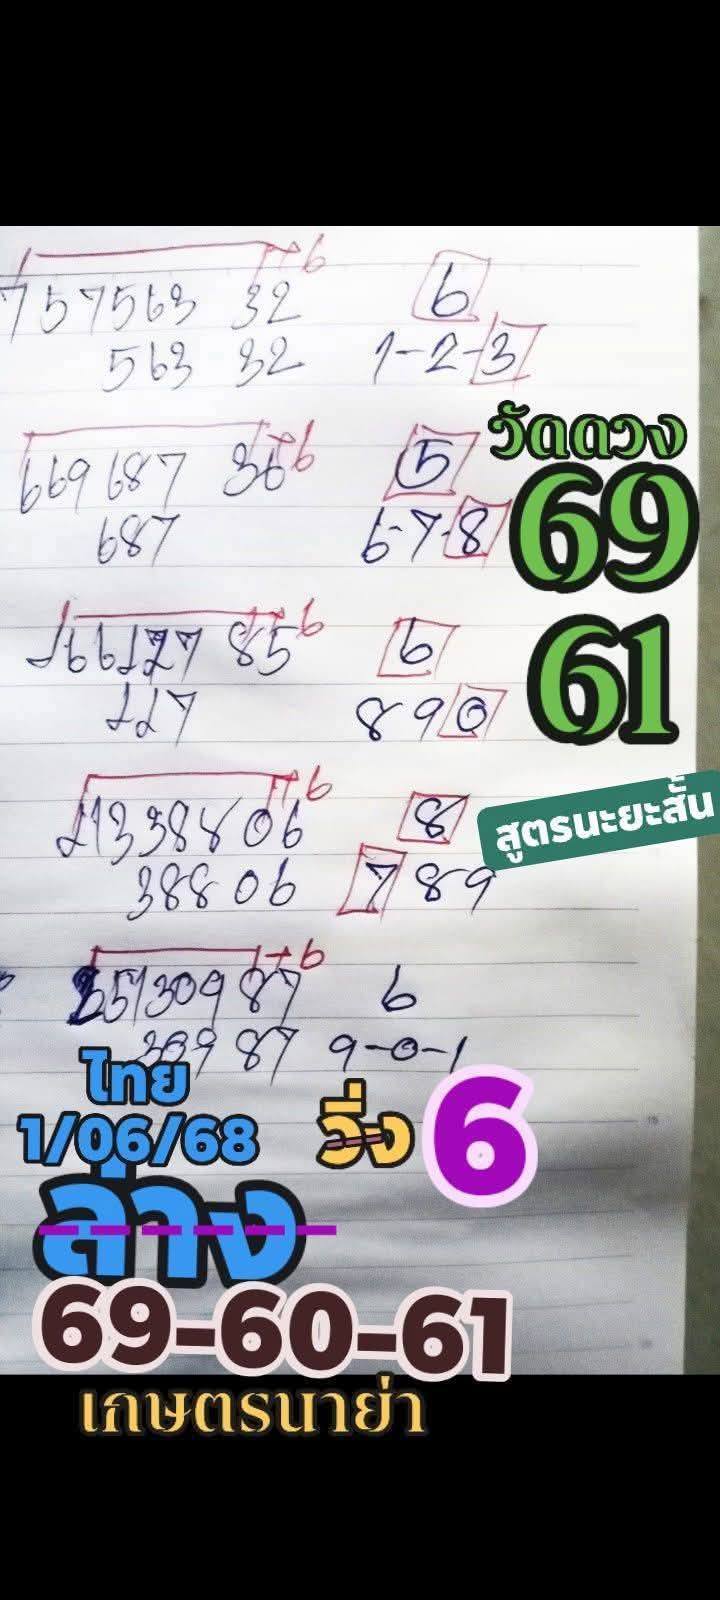 6
757563 32 6
563 32 1-2-3
6
669 687 36 5
687 6-7-8
วัดดวง
69
61
6
166127 85 6
127 890
6
21338806 8
38806 789
สูตรนะยะสั้น
6
251309 87 6
309 87 9-0-1
ไทย
1/06/68
วิ่ง 6
ล่าง
69-60-61
เกษตรนาย่า